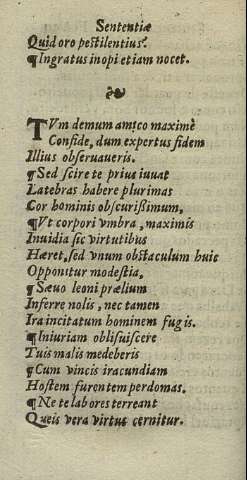 Sententiæ
Quid oro pestilentius?
¶ Ingratus inopi etiam nocet.
TVm demum amico maximè
Confide, dum expertus fidem
Illius obseruaueris.
¶ Sed scire te prius iuuat
Latebras habere plurimas
Cor hominis obscurißimum,
¶ Vt corpori vmbra, maximis
Inuidia sic virtutibus
Hæret, sed vnum obstaculum huic
Opponitur modestia,
¶ Sæuo leoni prælium
Inferre nolis, nec tamen
Ira incitatum hominem fugis.
¶ Iniuriam obliuiscere
Tuis malis medeberis
¶ Cum vincis iracundiam
Hostem furentem perdomas.
¶ Ne te labores terreant
Queis vera virtus cernitur.